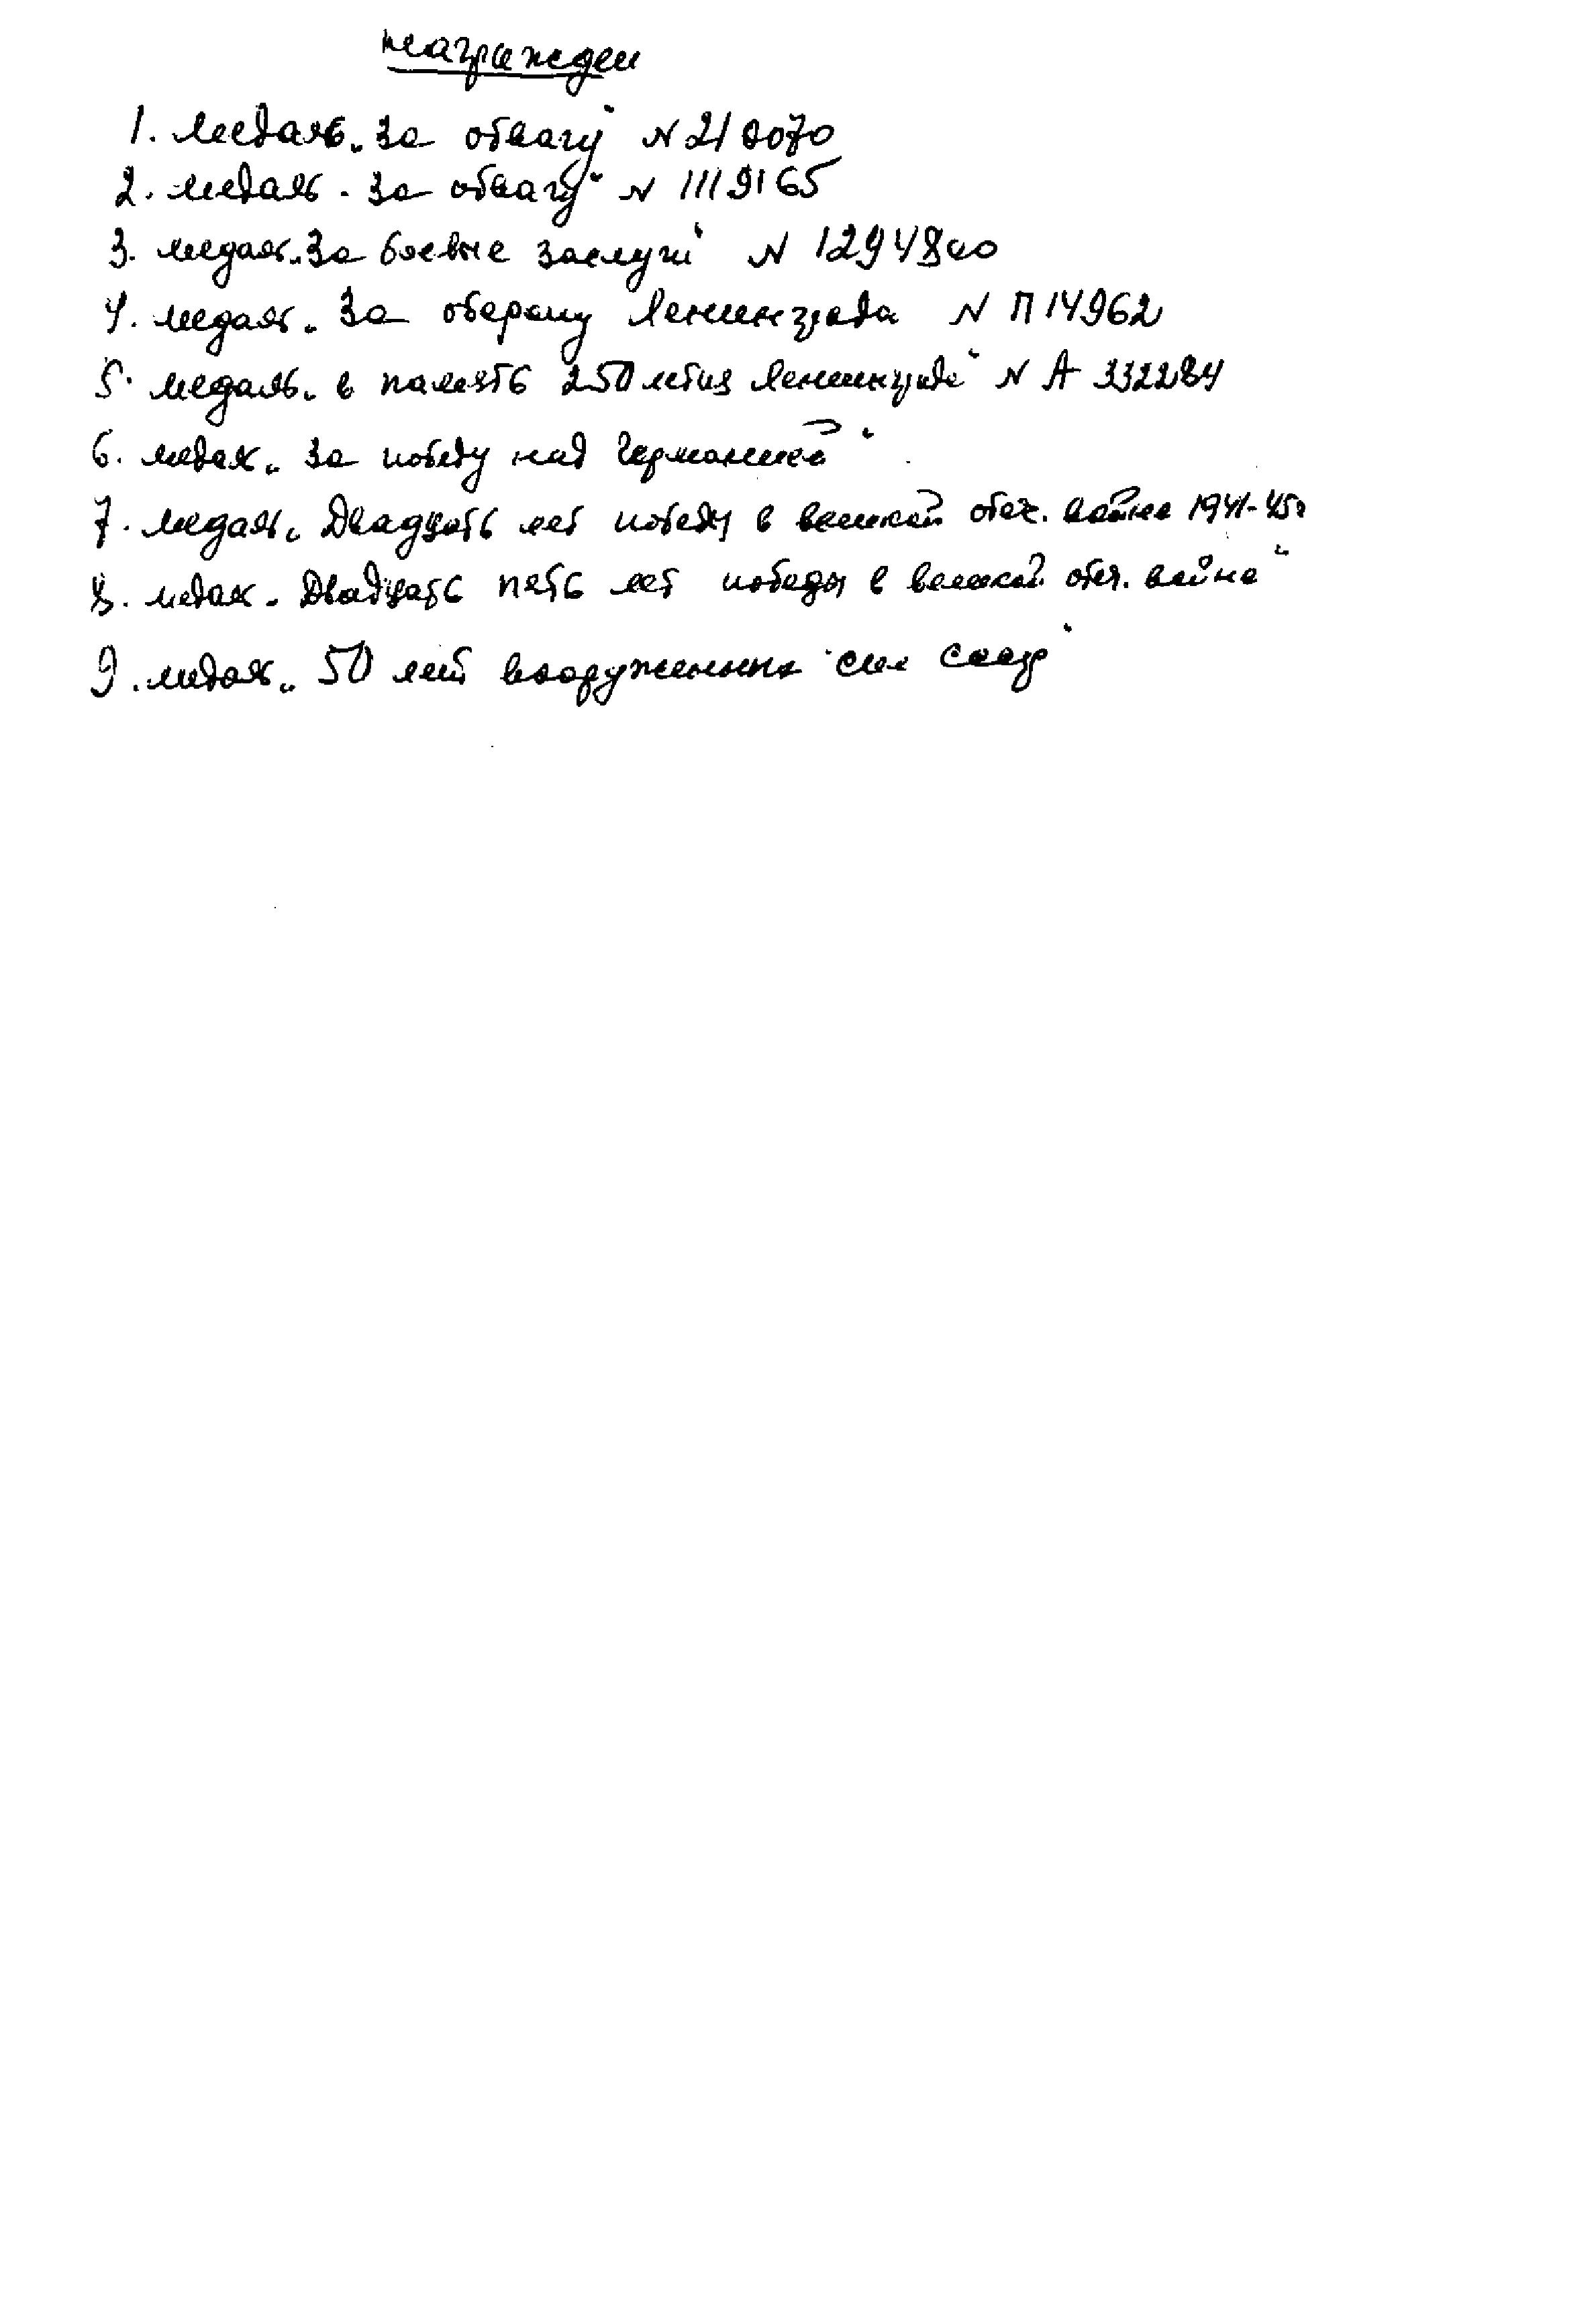 награжден
1. медаль „За отвагу" N 210070
2. медаль „За отвагу" N 1119165
3. медаль „За боевые заслуги" N 1294800
4. медаль „За оборону Ленинграда N П14962
5. медаль „в память 250 летия Ленинграда" N А 332284
6. медаль „За победу над Германией"
7. медаль „Двадцать лет победы в великой отеч. войне 1941-45г
8. медаль „Двадцать пять лет победы в великой отеч. войне"
9. медаль „50 лет вооруженных сил ссср"